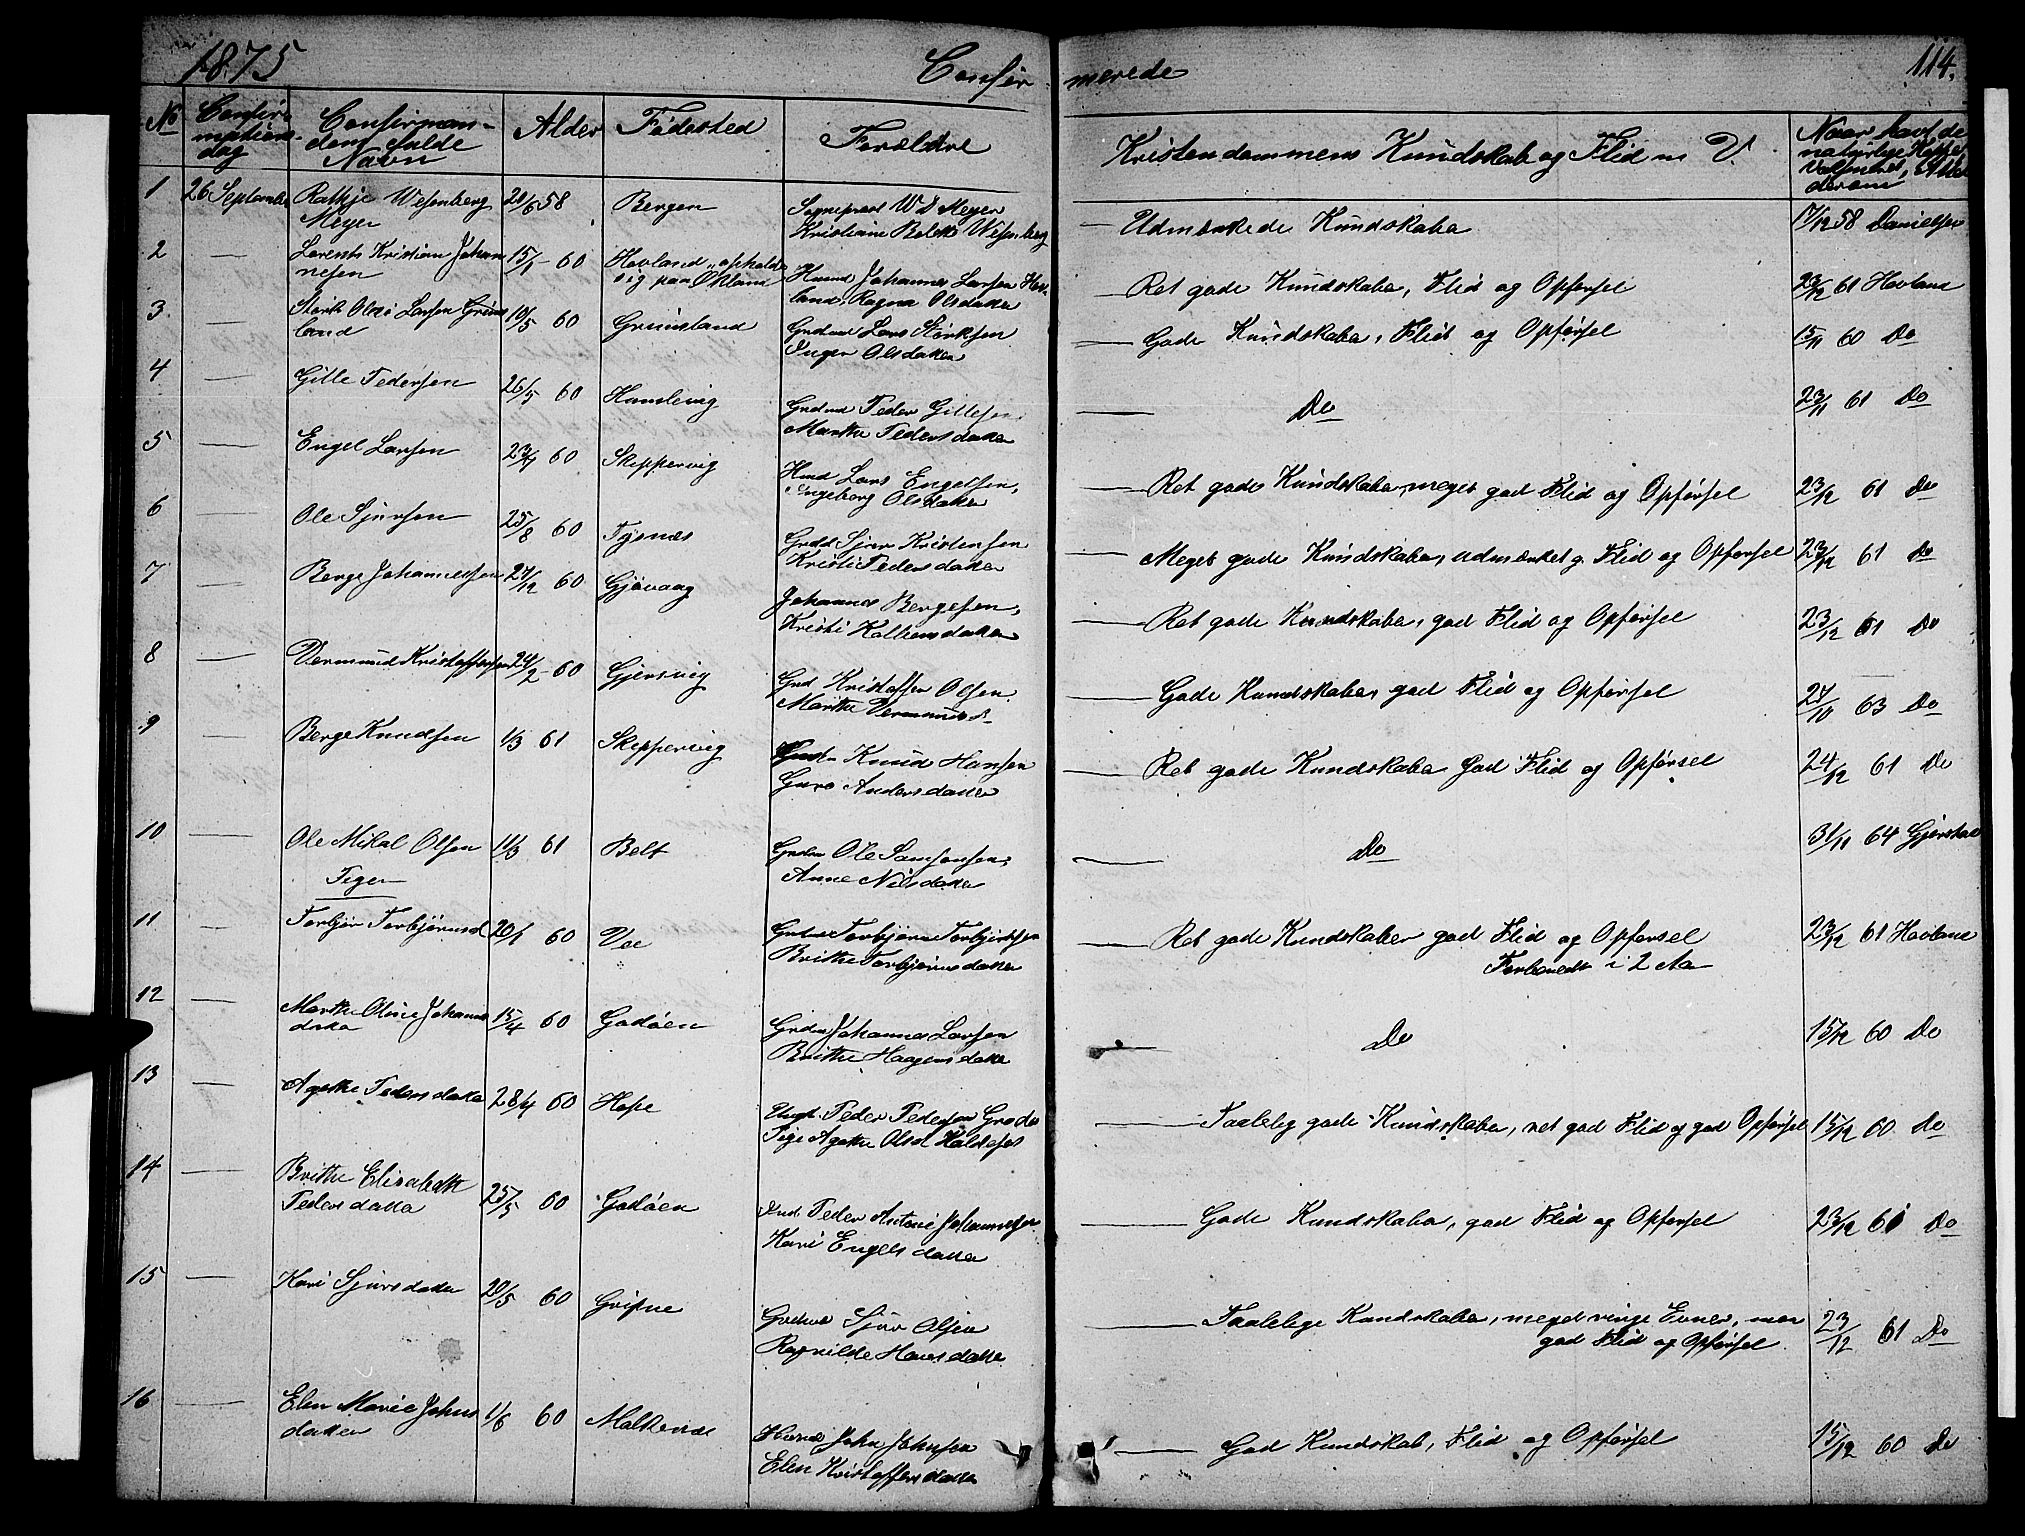 1875 Confir merede 114.
No Confirmations dag Confirmandens fulde Navn Alder Fødested Forældre Kristendommens Kundskab og Flid m V. Naar havt de naturlige Kopper
1 26 September Rathje Wesenberg 20/6 58 Bergen Sognepræst W D Meyer
Meyer Kristiane Wesenberg Udmærkede Kundskaber 17/12 58 Danielsen
2 Lorents Kristian Johan 15/1 60 Hovland, opholder
nesen sig paa Økland Huusmd Johannes Larsen Hov
land, Ragna Olsdatter Ret gode Kundskaber, Flid og Opførsel 23/12 61 Hovland
3 Størk Olai Larsen Grims 10/5 60 Grimsland
land Grdmd Lars Størksen
Inger Olsdatter Gode Kundskaber, Flid og Opførsel 15/11 60 Do
4 Gitle Pedersen 26/5 60 Humlevig Grdmd Peder Gitlesen
Marthe Pedersdatter Do 23/11 61 Do
5 Engel Larsen 23/7 60 Skeppervig Hmd Lars Engelsen,
Ingeborg Olsdatter Ret gode Kundskaber, meget god Flid og Opførsel 23/12 61 Do
6 Ole Sjursen 25/8 60 Tysnæs Grdd Sjur Kristensen
Kristi Pedersdatter Meget gode Kundskaber, udmærket g. Flid og Opførsel 23/12 61 Do
7 Berge Johannessen 27/12 60 Gjøvaag Johannes Bergesen,
Kristi Datter Ret gode Kundskaber, god Flid og Opførsel 23/12 61 Do
8 Vermund Kristoffersen 24/2 60 Gjersvig Grd Kristoffer Olsen
Marthe Vermunds d Gode Kundskaber, god Flid og Opførsel 24/10 63 Do
9 Berge Knudsen 1/3 61 Skeppervig Knud Hansen
Guro Andersdatter Ret gode Kundskaber God Flid og Opførsel 24/12 61 Do
10 Ole Mikal Olsen 11/3 61 Belt Grdm Ole Samsonsen,
Anne Nilsdatter Do 31/11 64
Piger
11 Torbjør Torbjørnsd 20/1 60 Voe Torbjørn Torbjørnsen
Brithe Torbjørnsdatter Ret gode Kundskaber god Flid og Opførsel 23/12 61 Hovland
Forberedt i 2 Aar
12 Marthe Oline Johannes 15/4 60 Godøen
datter Grdm Johannes Larsen
Brithe Haagensdatter Do 15/12 60 Do
13 Agathe Pedersdatter 28/4 60 Hope Ungk. Peder Pedersen
Pige Agathe Olsd Taalelig gode Kundskaber, ret god Flid og god Opførsel 15/12 60 Do
14 Brithe Elisabeth
Pedersdatter 25/5 60 Godøen Peder Antoni Johannessen
Kari Engelsdatter Gode Kundskaber, god Flid og Opførsel 23/12 61 Do
15 Kari Sjursdatter 20/5 60 Gripne Sjur Olsen
Ragnilde Hansdatter Taalelige Kundskaber, meget ringe Evner, men
god Flid og Opførsel. 23/12 61 Do
16 Elen Marie Johns 1/6 60 Malkenæs
datter John Johnsen
Elen Kristoffersdatter God Kundskab, Flid og Opførsel 15/12 60 Do